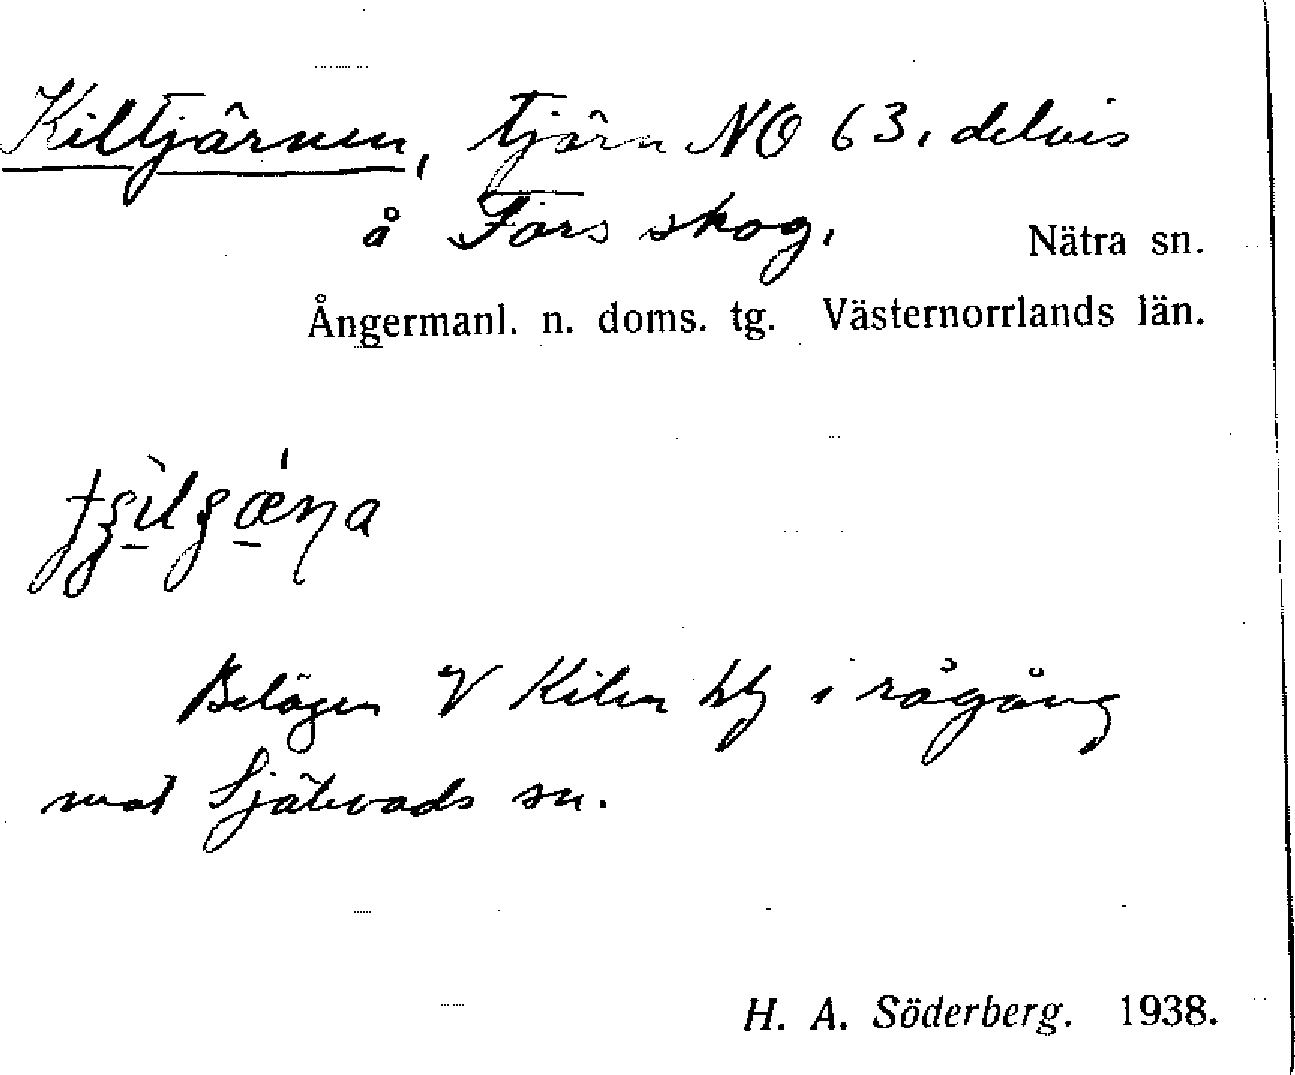 Kiltjärnen, tjärn NO 63, delvis
å Fors skog.
Nätra sn.
Ångermanl. n. doms. tg. Västernorrlands län.
Belägen V Kilen by i rågång
mot Själevads sn.
H. A. Söderberg. 1938.